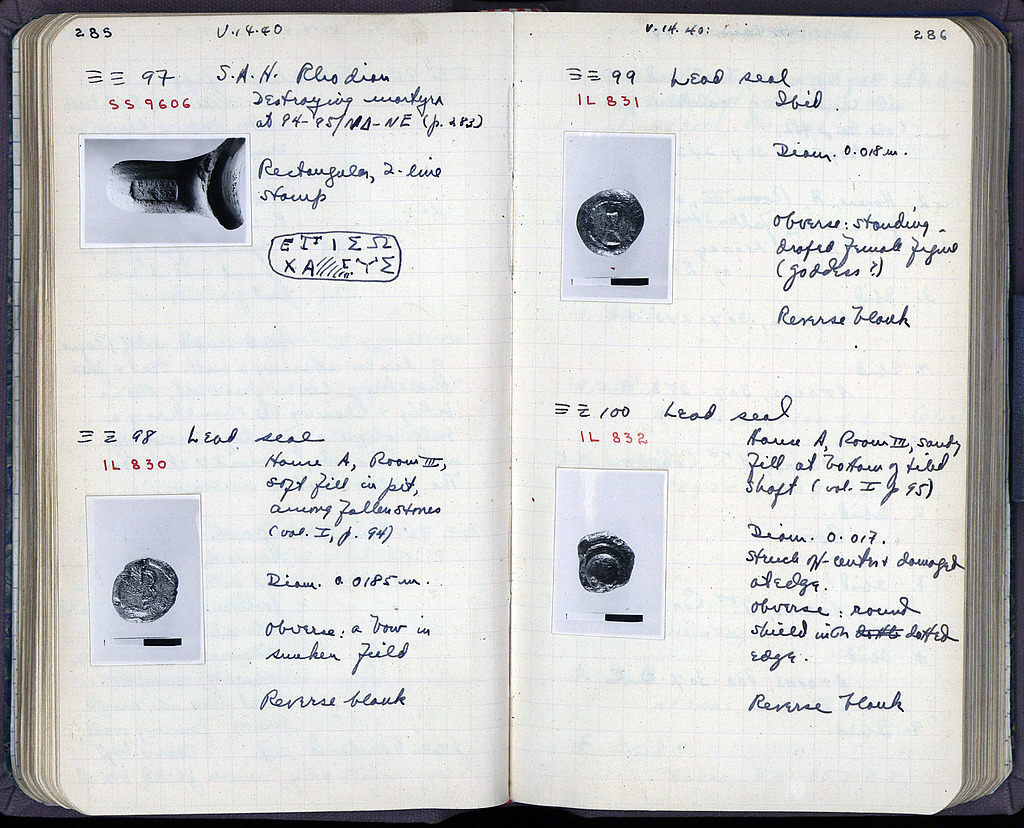 285
V.14.40
ΞΞ 97 S.A.H. Rhodian
SS 9606
Destroying martyrs
at 94-95/ΝΔ-ΝΕ (p. 283)
Rectangular, 2-line
stamp
Ε Π Ι Σ Ω
Χ Α Γ Υ Σ
ΞΞ 98 Lead seal
IL 830
House A, Room III,
soft fill in pit,
among fallen stones
(vol. I, p. 94)
Diam. 0.0185 m.
Obverse: a bow in
sunken field
Reverse blank
V.14.40:
286
ΞΞ 99 Lead seal
IL 831
Ibid
Diam. 0.018 m.
Obverse: standing
draped female figure
(goddess?)
Reverse blank
ΞΞ 100 Lead seal
IL 832
House A, Room III, sandy
fill at bottom of tiled
shaft (vol. I p 95)
Diam. 0.017.
Struck off-center + damaged
at edge.
Obverse: round
shield with dotted
edge.
Reverse blank